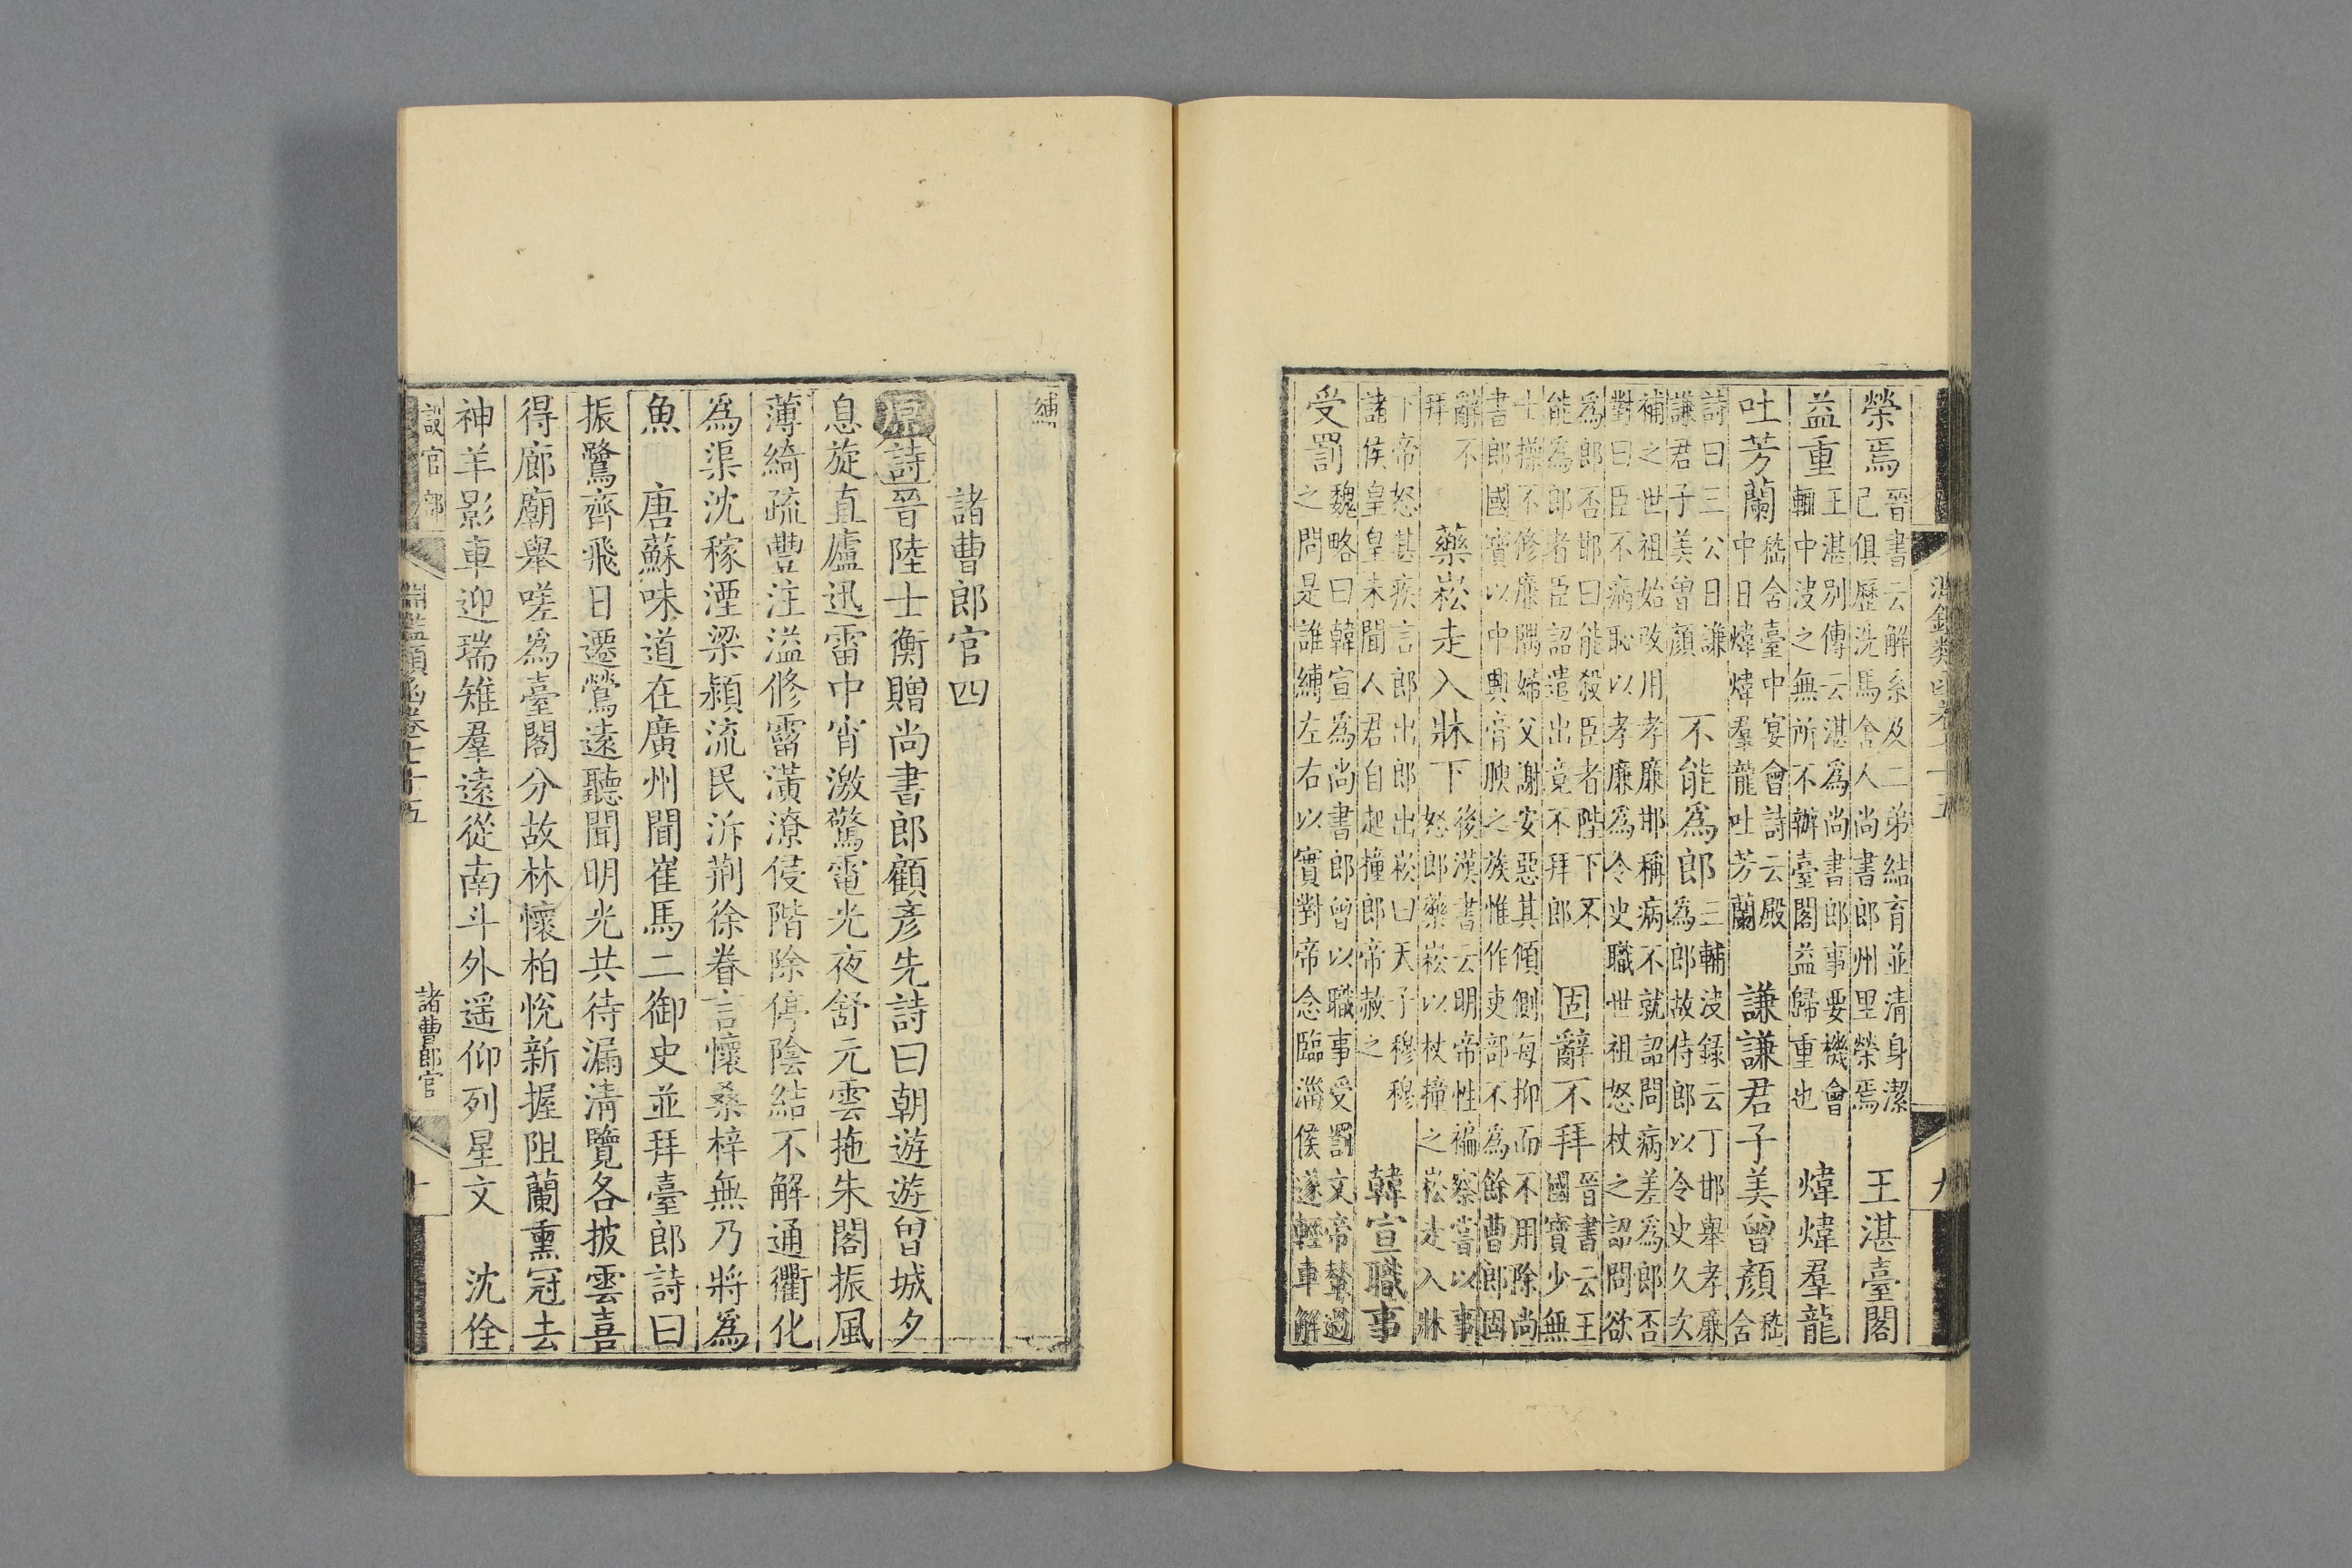 淵鑑類函卷七十五
九
榮焉
晉書云解系及二弟結育並清身潔
己俱歷洗馬舍人尚書郎州里榮焉
王湛臺閣
益重
王湛別傳云湛為尚書郎事要機會
輒中波之無所不辦臺閣益歸重也
煒煒羣龍
吐芳蘭
嵇含臺中宴會詩云殿
中日煒煒煒羣龍吐芳蘭
謙謙君子美曾顏
嵇
含
詩曰三公曰謙
謙君子美曾顏
不能爲郎
三輔决錄云丁邯舉孝廉
為郎故侍郎以令史久次
補之世祖始改用孝廉邯稱病不就詔問病差爲郎否
對曰臣不病恥以孝廉爲令史職世祖怒杖之詔問欲
爲郎否邯曰能殺臣者陛下不
能爲郎者臣詔遣出竟不拜郎
固辭不拜
晉書云王
國寶少無
士操不修廉隅婦父謝安惡其傾側每抑而不用除尚
書郎國寶以中興膏腴之族惟作吏部不爲餘曹郎固
辭不
拜
藥崧走入牀下
後漢書云明帝性褊察嘗以事
怒郎藥崧以杖撞之崧走入牀
下帝怒甚疾言郎出郎出崧曰天子穆穆
諸侯皇皇未聞人君自起撞郎帝赦之
韓宣職事
受罰
魏略曰韓宣爲尚書郎曾以職事受罰文帝輦過
之問是誰縛左右以實對帝念臨淄侯遂輕車解
縛
諸曹郎官四
原詩晉陸士衡贈尚書郎顧彥先詩曰朝遊遊曾城夕
息旋直廬迅雷中宵激驚電光夜舒元雲拖朱閣振風
薄綺疏豐注溢修霤潢潦侵階除停陰結不解通衢化
爲渠沈稼湮梁潁流民泝荆徐眷言懷桑梓無乃將爲
魚　唐蘇味道在廣州聞崔馬二御史並拜臺郎詩曰
振鷺齊飛日遷鶯遠聽聞明光共待漏清覽各披雲喜
得廊廟舉嗟爲臺閣分故林懷柏悅新握阻蘭熏冠去
神羊影車迎瑞雉羣遠從南斗外遥仰列星文　沈佺
設官部
淵鑑類函卷七十五
諸曹郎官
十